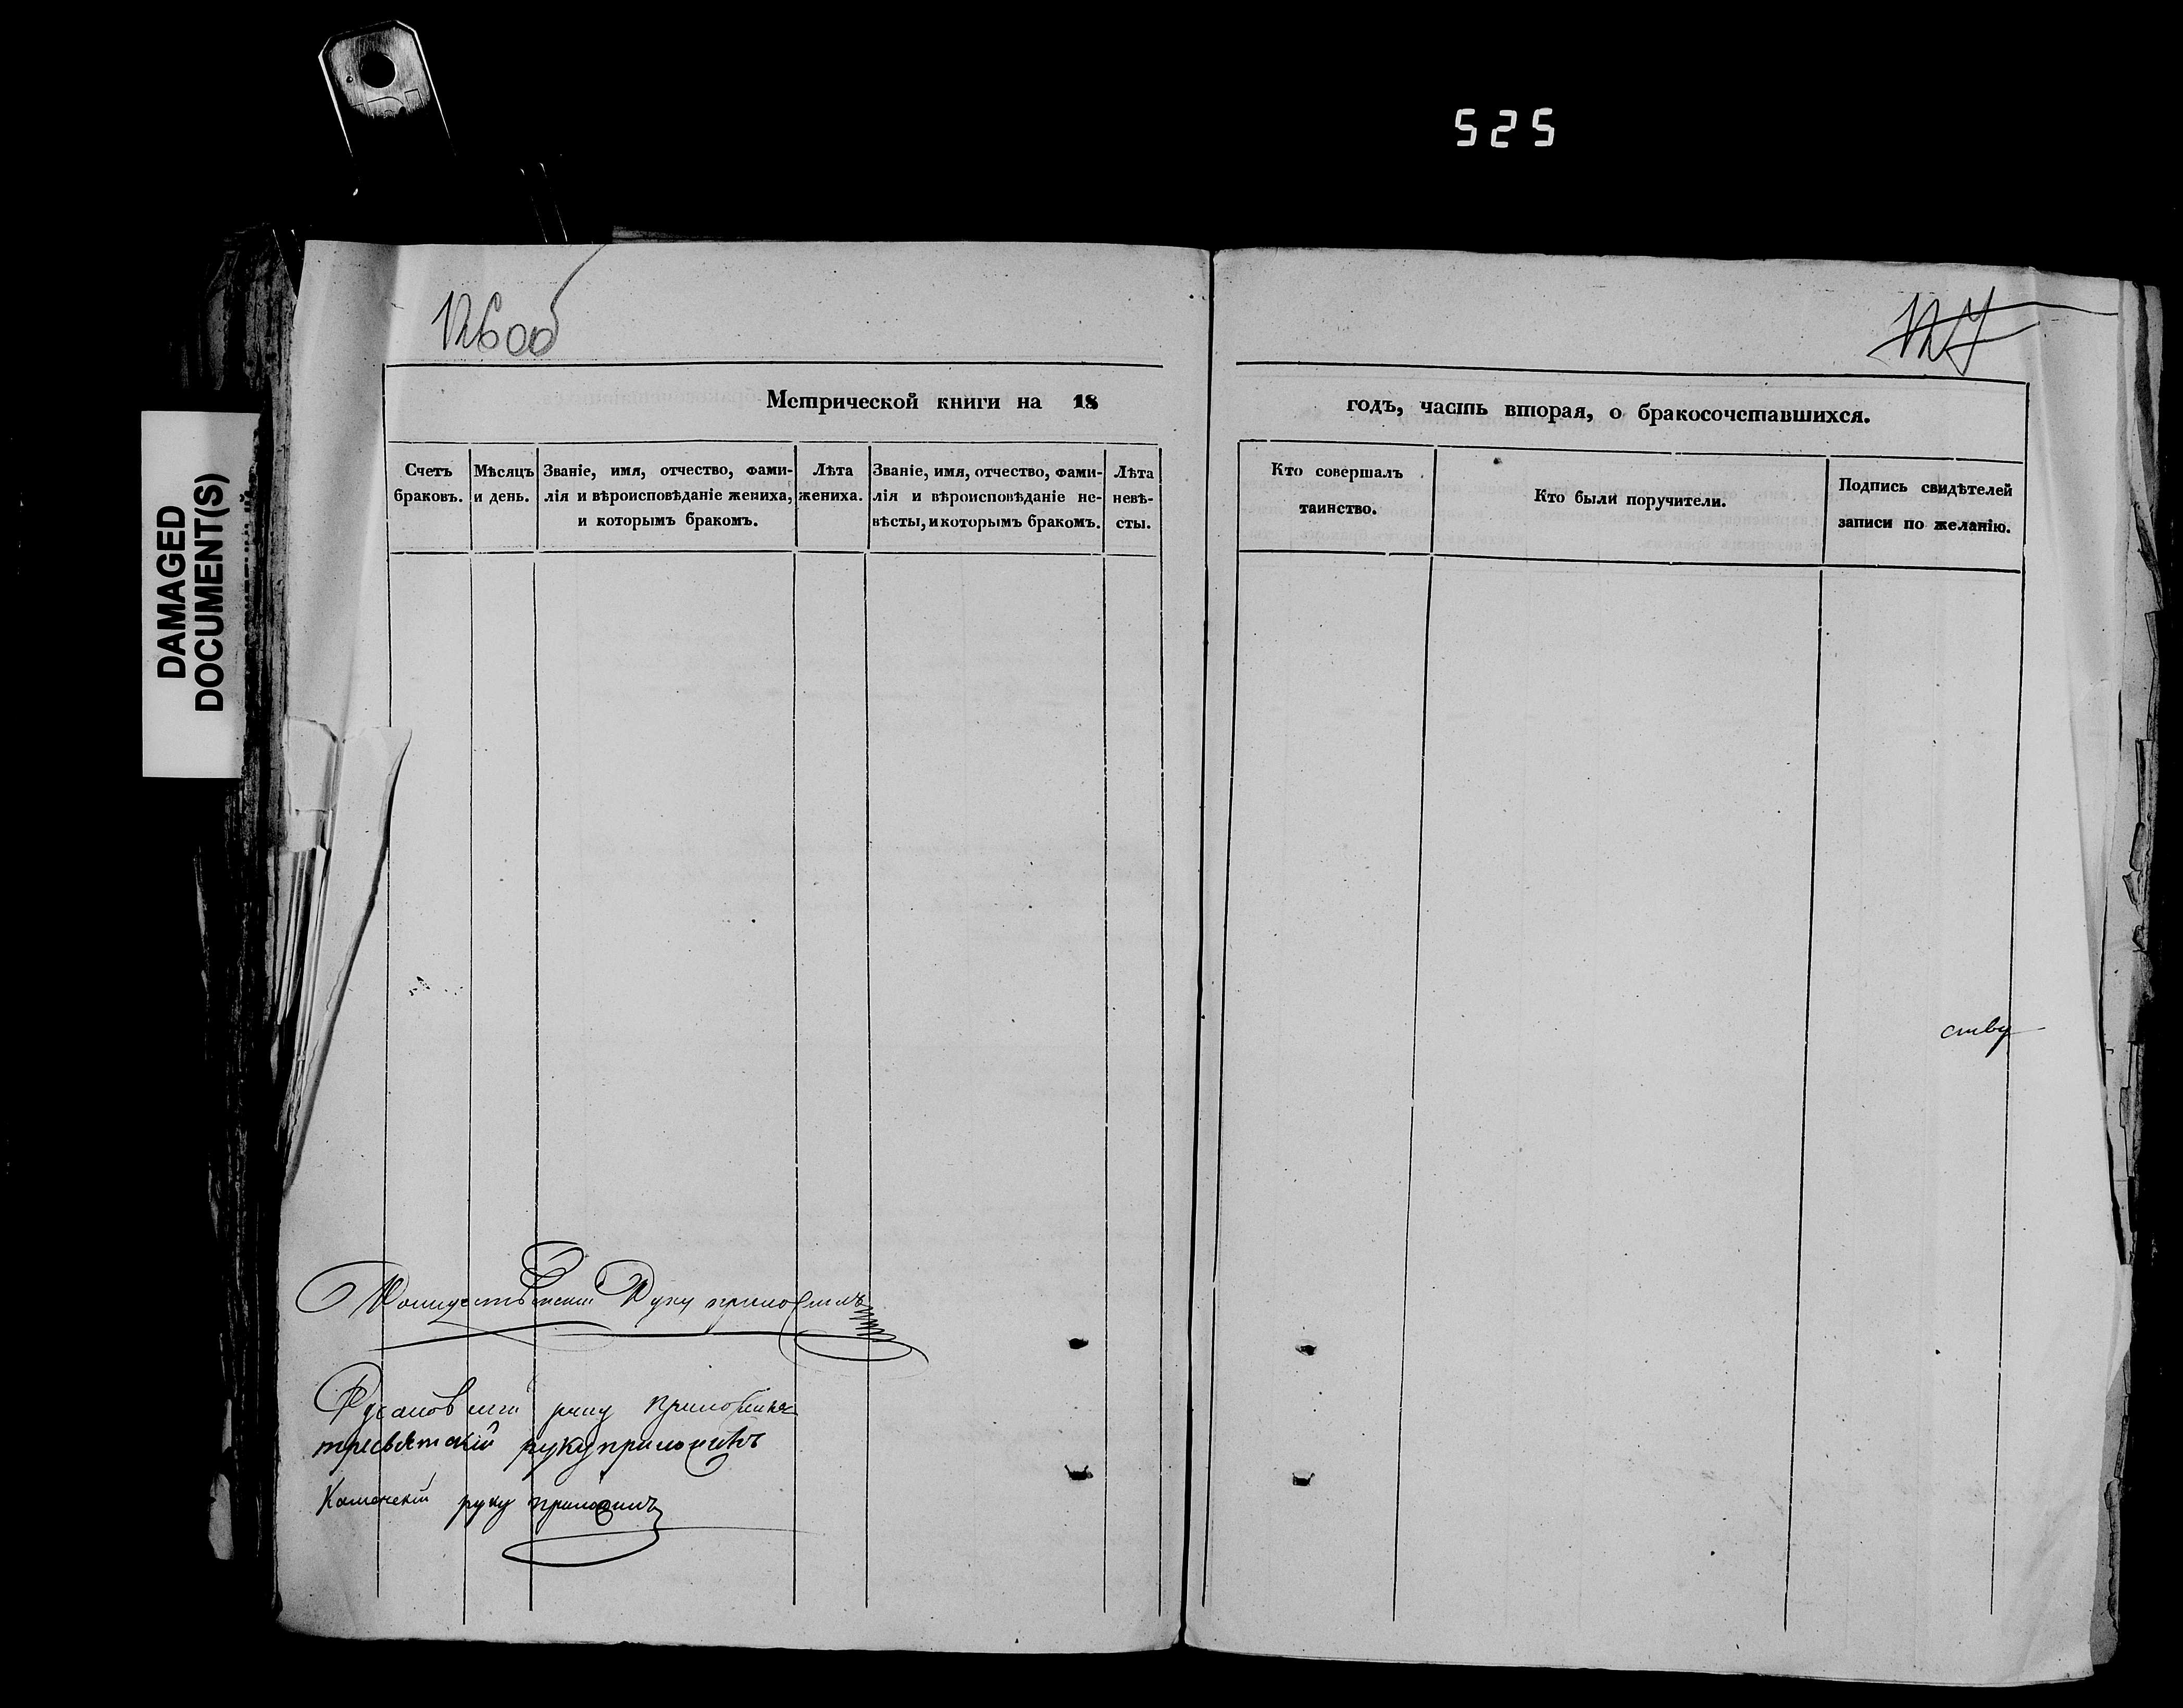 525
DAMAGED
DOCUMENT(S)
126об
127
Метрической книги на 18
годъ, часть вторая, о бракосочетавшихся.
Счетъ
браковъ.
Мѣсяцъ
и день.
Званіе, имя, отчество, фами-
лія и вѣроисповѣданіе жениха,
и которымъ бракомъ.
Лѣта
жениха.
Званіе, имя, отчество, фами-
лія и вѣроисповѣданіе не-
вѣсты, и которымъ бракомъ.
Лѣта
невѣ-
сты.
Кто совершалъ
таинство.
Кто были поручители.
Подпись свидѣтелей
записи по желанію.
ству
Руку приложилъ
руку приложилъ
тресвятскій руку приложилъ
Каменскій руку приложилъ